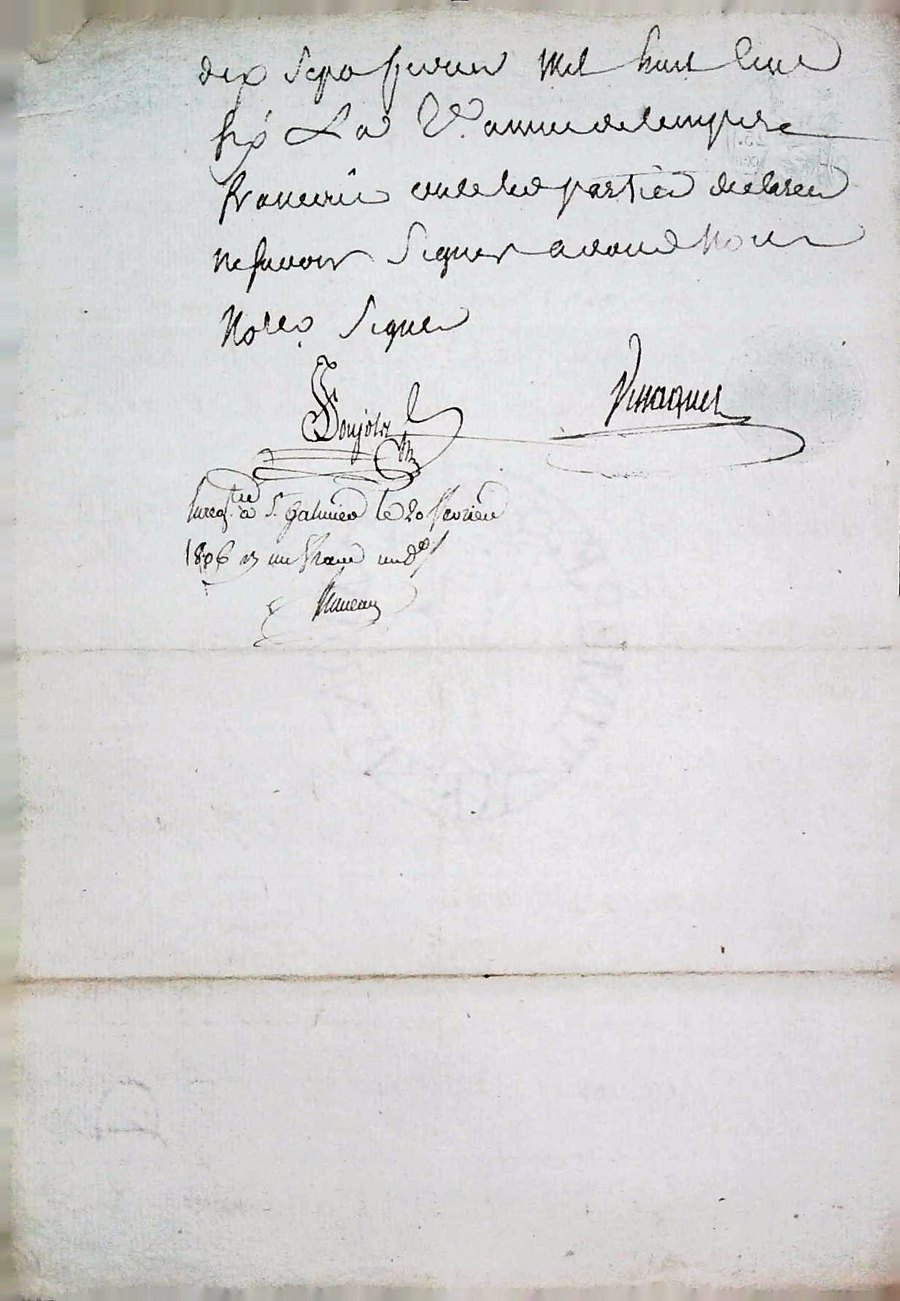 dix Sept fevrier Mil huit Cent
six L'an 2e. annee de lempire
francais ont les parties declaré
ne savoir Signer avons Nous
Notre. Signé
Vissaguet
Enreg.tré à St. Galmier le 20 fevrier
1806 un franc un de